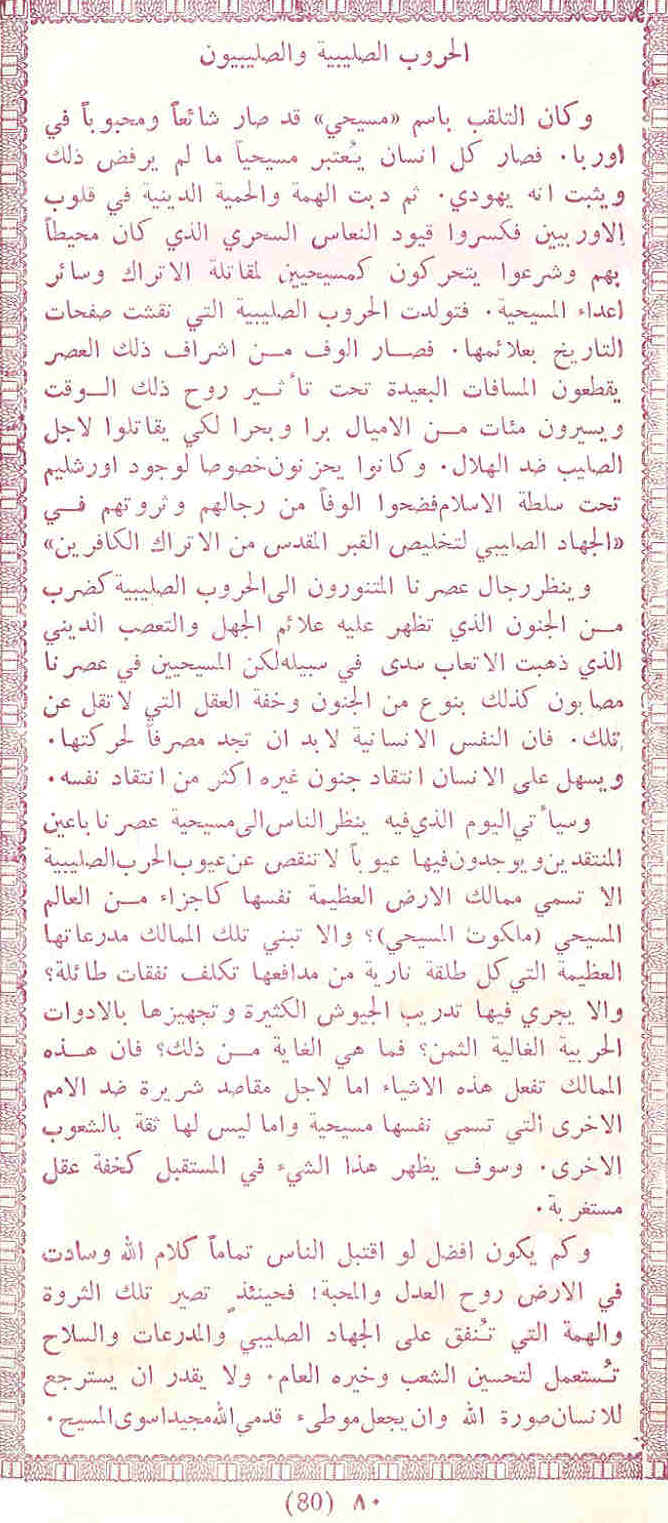 الحروب الصليبية والصليبيون
وكان التلقب باسم «مسيحي» قد صار شائعاً ومحبوباً في
اوربا. فصار كل انسان يُعتبر مسيحياً ما لم يرفض ذلك
ويثبت انه يهودي. ثم دبت الهمة والحمية الدينية في قلوب
الاوربيين فكسروا قيود النعاس السحري الذي كان محيطاً
بهم وشرعوا يتحركون كمسيحيين لمقاتلة الاتراك وسائر
اعداء المسيحية. فتولدت الحروب الصليبية التي نقشت صفحات
التاريخ بعلائمها. فصار الوف من اشراف ذلك العصر
يقطعون المسافات البعيدة تحت تأثير روح ذلك الوقت
ويسيرون مئات من الاميال برا وبحرا لكي يقاتلوا لاجل
الصليب ضد الهلال. وكانوا يحزنون خصوصا لوجود اورشليم
تحت سلطة الاسلام فضحوا الوفاً من رجالهم وثروتهم في
«الجهاد الصليبي لتخليص القبر المقدس من الاتراك الكافرين»
وينظر رجال عصرنا المتنورون الى الحروب الصليبية كضرب
من الجنون الذي تظهر عليه علائم الجهل والتعصب الديني
الذي ذهبت الاتعاب سدى في سبيله لكن المسيحيين في عصرنا
مصابون كذلك بنوع من الجنون وخفة العقل التي لا تقل عن
تلك. فان النفس الانسانية لا بد ان تجد مصرفاً لحركتها.
ويسهل على الانسان انتقاد جنون غيره اكثر من انتقاد نفسه.
وسيأتي اليوم الذي فيه ينظر الناس الى مسيحية عصرنا باعين
المنتقدين ويوجدون فيها عيوباً لا تنقص عن عيوب الحرب الصليبية
الا تسمي ممالك الارض العظيمة نفسها كاجزاء من العالم
المسيحي (ملكوت المسيحي)؟ والا تبني تلك الممالك مدرعاتها
العظيمة التي كل طلقة نارية من مدافعها تكلف نفقات طائلة؟
والا يجري فيها تدريب الجيوش الكثيرة وتجهيزها بالادوات
الحربية الغالية الثمن؟ فما هي الغاية من ذلك؟ فان هذه
الممالك تفعل هذه الاشياء اما لاجل مقاصد شريرة ضد الامم
الاخرى التي تسمي نفسها مسيحية واما ليس لها ثقة بالشعوب
الاخرى. وسوف يظهر هذا الشيء في المستقبل كخفة عقل
مستغربة.
وكم يكون افضل لو اقتبل الناس تماماً كلام الله وسادت
في الارض روح العدل والمحبة! فحينئذٍ تصير تلك الثروة
والهمة التي تُنفق على الجهاد الصليبي والمدرعات والسلاح
تُستعمل لتحسين الشعب وخيره العام. ولا يقدر ان يسترجع
للانسان صورة الله وان يجعل موطىء قدمي الله مجيدا سوى المسيح.
٨٠ (80)